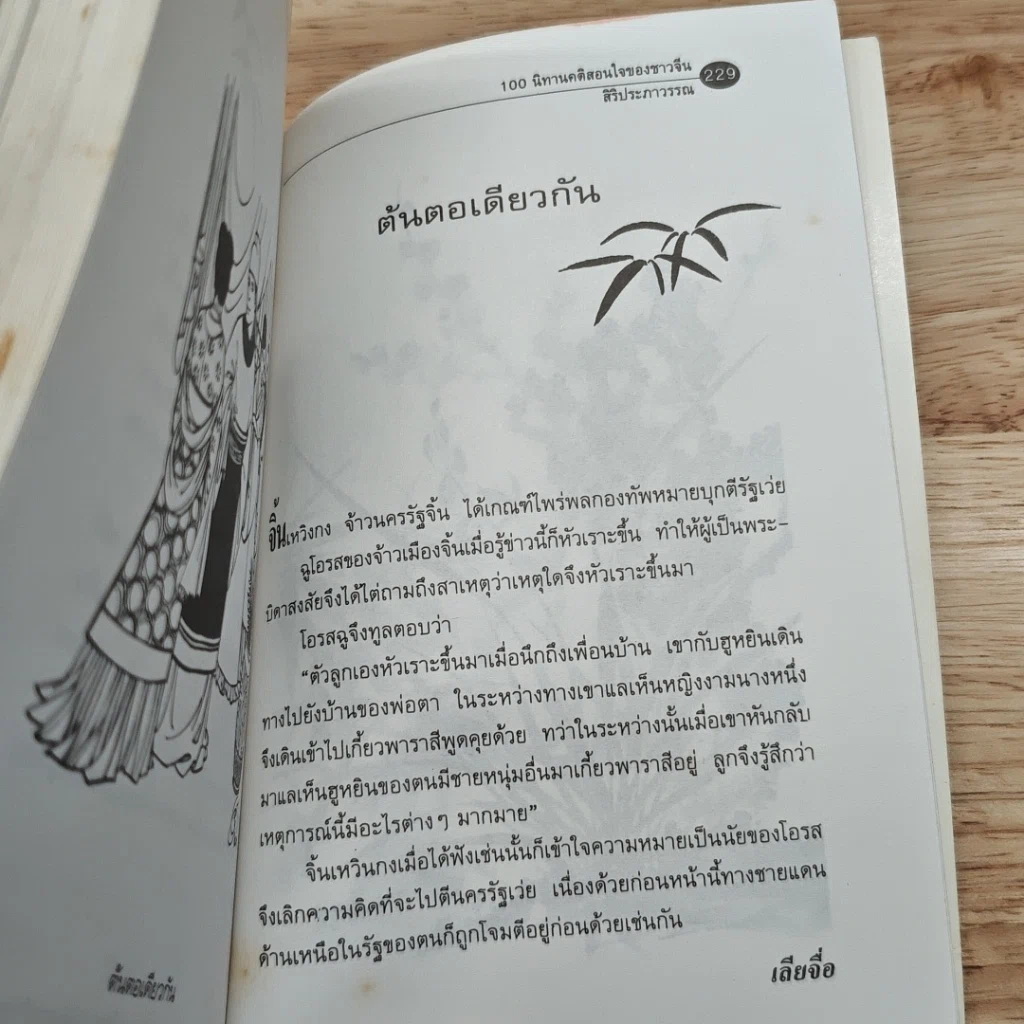 100 นิทานคติสอนใจของชาวจีน
สิริประภาวรรณ
229
ต้นตอเดียวกัน
จิ้นเหวิงกง จ้าวนครรัฐจิ้น ได้เกณฑ์ไพร่พลกองทัพหมายบุกตีรัฐเว่ย
ฉูโอรสของจ้าวเมืองจิ้นเมื่อรู้ข่าวนี้ก็หัวเราะขึ้น ทำให้ผู้เป็นพระ-
บิดาสงสัยจึงได้ไต่ถามถึงสาเหตุว่าเหตุใดจึงหัวเราะขึ้นมา
โอรสฉูจึงทูลตอบว่า
“ตัวลูกเองหัวเราะขึ้นมาเมื่อนึกถึงเพื่อนบ้าน เขากับฮูหยินเดิน
ทางไปยังบ้านของพ่อตา ในระหว่างทางเขาแลเห็นหญิงงามนางหนึ่ง
จึงเดินเข้าไปเกี้ยวพาราสีพูดคุยด้วย ทว่าในระหว่างนั้นเมื่อเขาหันกลับ
มาแลเห็นฮูหยินของตนมีชายหนุ่มอื่นมาเกี้ยวพาราสีอยู่ ลูกจึงรู้สึกว่า
เหตุการณ์นี้มีอะไรต่างๆ มากมาย”
จิ้นเหวินกงเมื่อได้ฟังเช่นนั้นก็เข้าใจความหมายเป็นนัยของโอรส
จึงเลิกความคิดที่จะไปตีนครรัฐเว่ย เนื่องด้วยก่อนหน้านี้ทางชายแดน
ด้านเหนือในรัฐของตนก็ถูกโจมตีอยู่ก่อนด้วยเช่นกัน
เลียจื่อ
ต้นตอเดียวกัน